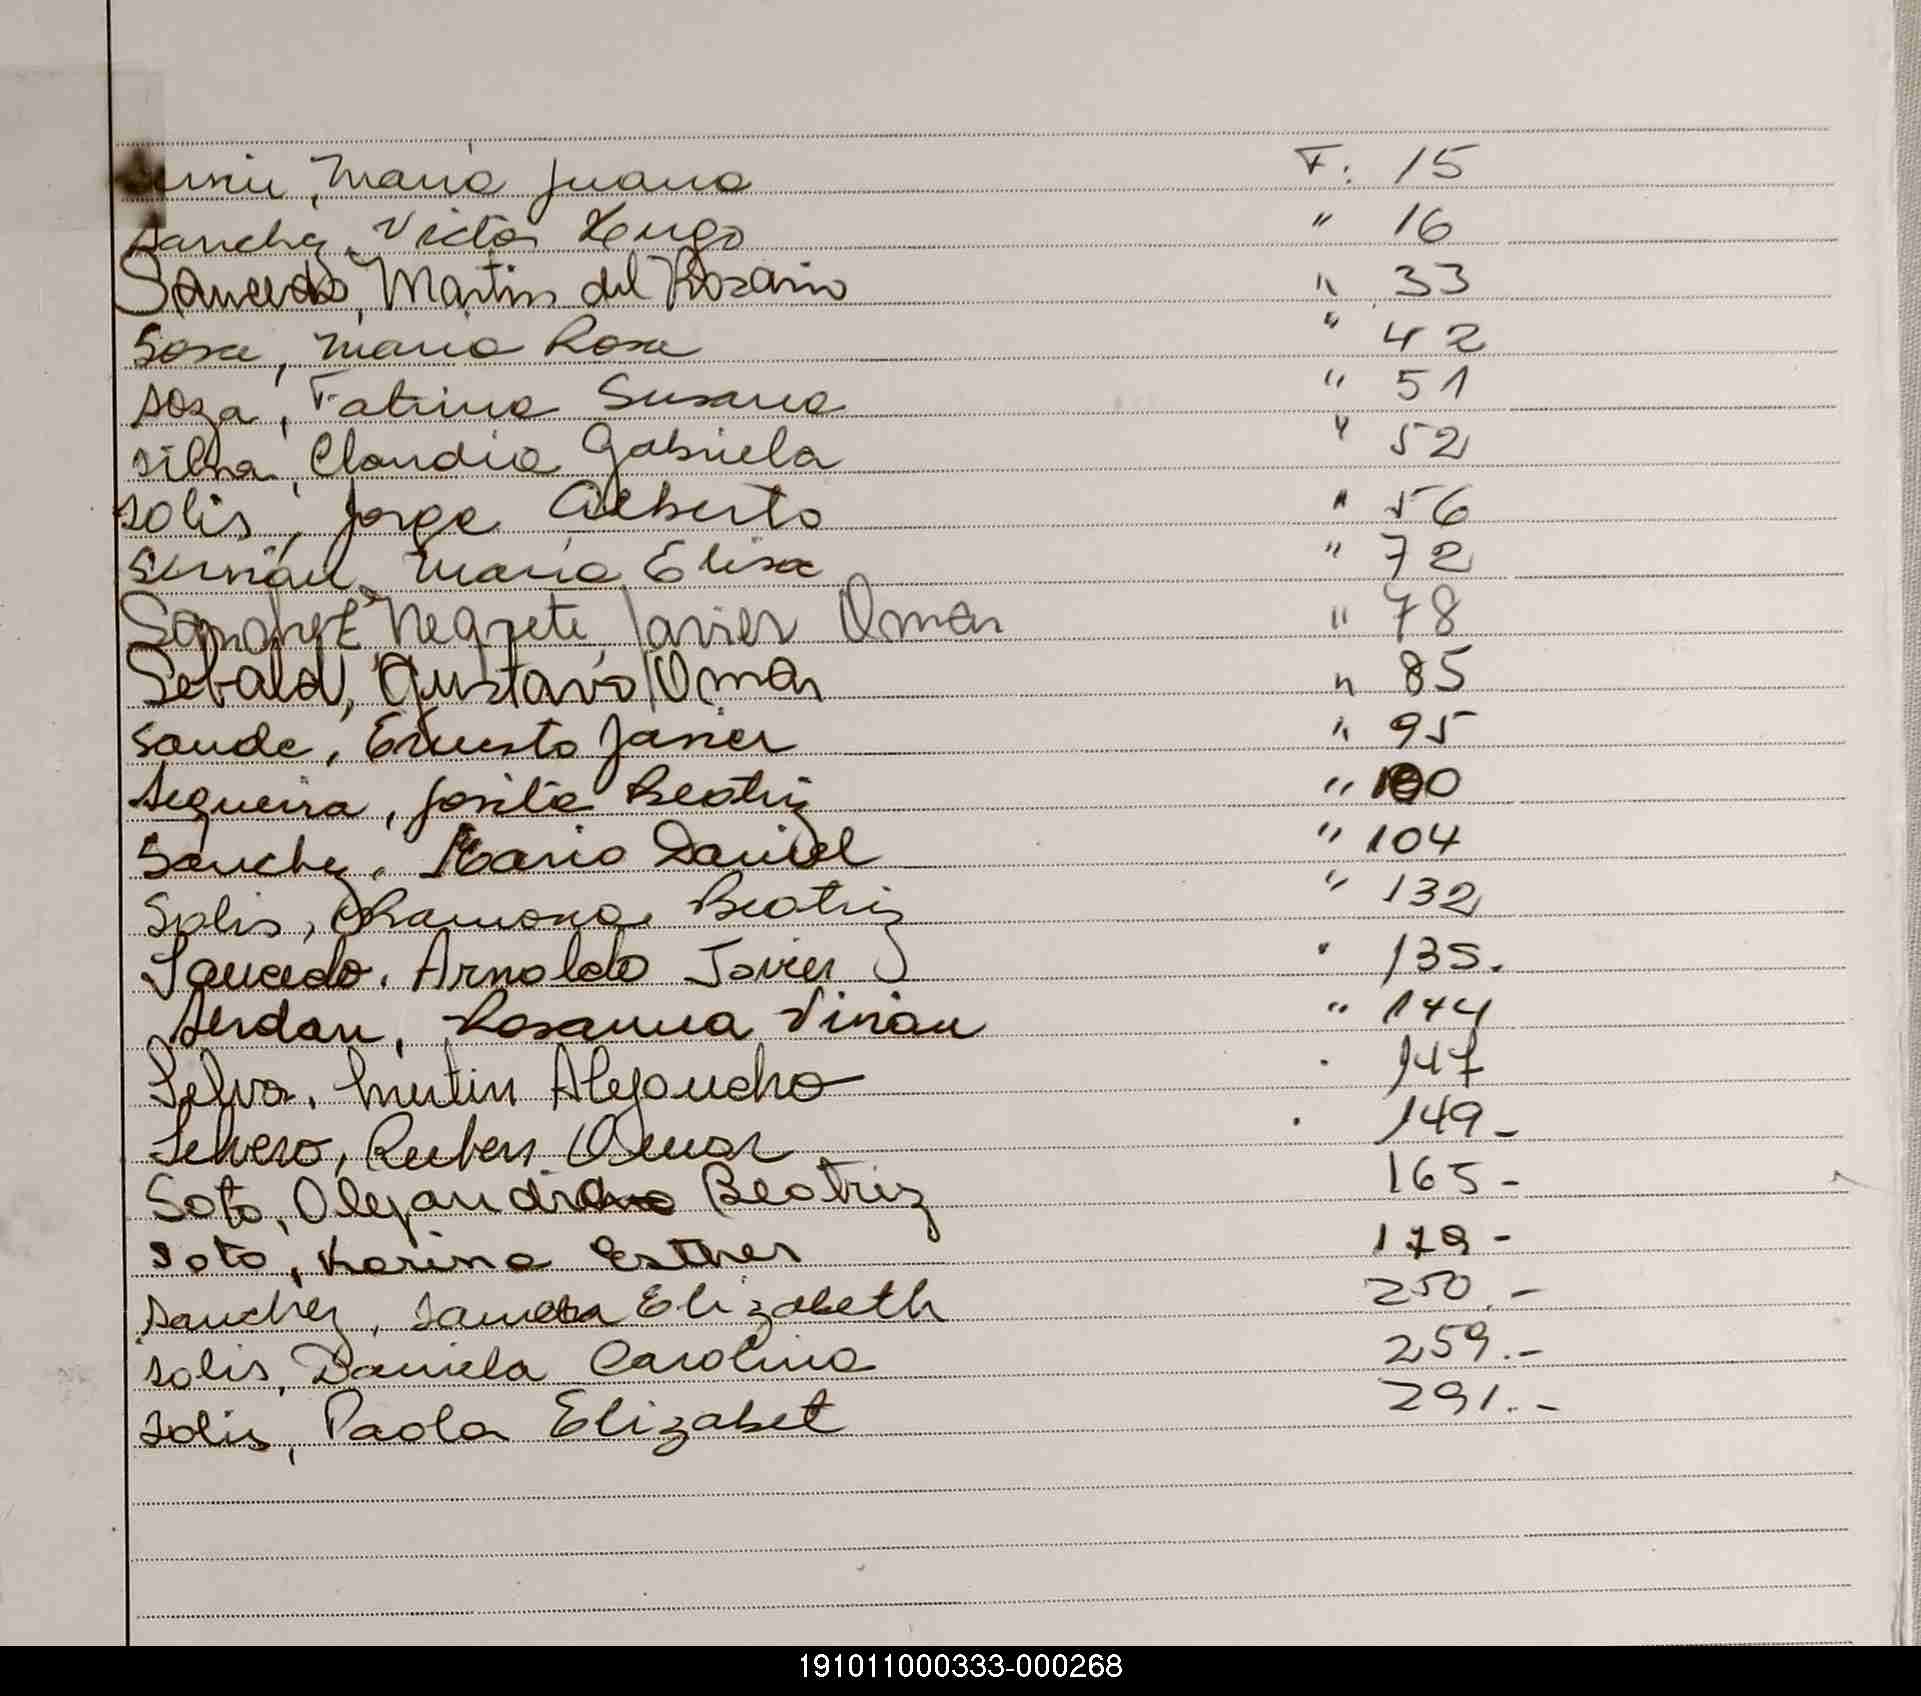 María Juana F. 15
Sanchez, Victor Hugo " 16
Saucedo, Martin del Rosario " 33
Sosa, María Rosa " 42
Soza, Fatima Susana " 51
Silva, Claudia Gabriela " 52
Solis, Jorge Alberto " 56
María Elisa " 72
Sanchez Negrete, Javier Omar " 78
Sebald, Gustavo Omar " 85
Ernesto Javier " 95
Sequeira, Beatriz " 100
Sanchez, Mario Daniel " 104
Solis, Ramona Beatriz " 132
Saucedo, Arnoldo Javier " 135.
Serdan, Rosanna Vivian " 144
Selva, Alejandro 147
Severo, Ruben Omar 149-
Soto, Alejandra Beatriz 165-
Soto, Karina Esther 179-
Sanchez, Sandra Elizabeth 250.-
Solis, Daniela Carolina 259.-
Solis, Paola Elizabet 291.-
191011000333-000268